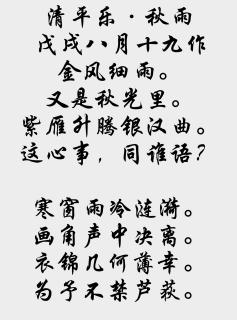 清平乐·秋雨
戊戌八月十九作
金风细雨。
又是秋光里。
紫雁升腾银汉曲。
这心事，同谁语？
寒窗雨泠涟漪。
画角声中决离。
衣锦几何薄幸。
为予不禁芦荻。